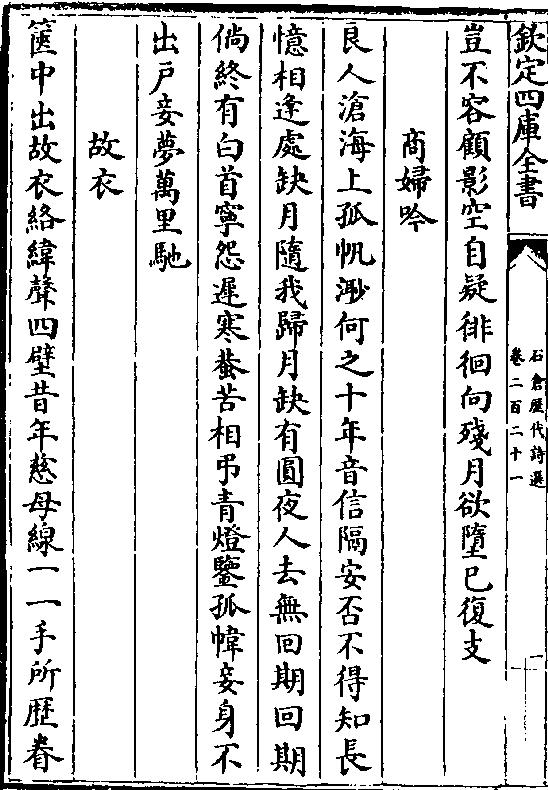 欽定四庫全書
石倉歷代詩選
卷二百二十一
豈不容顧影空自疑徘徊向殘月欲墮已復支
商婦吟
良人滄海上孤帆渺何之十年音信隔安否不得知長
憶相逢處缺月隨我歸月缺有圓夜人去無回期回期
倘終有白首寧怨遲寒蛩苦相弔青燈鑒孤幃妾身不
出戶妾夢萬里馳
故衣
篋中出故衣絡緯聲四壁昔年慈母線一一手所歷眷